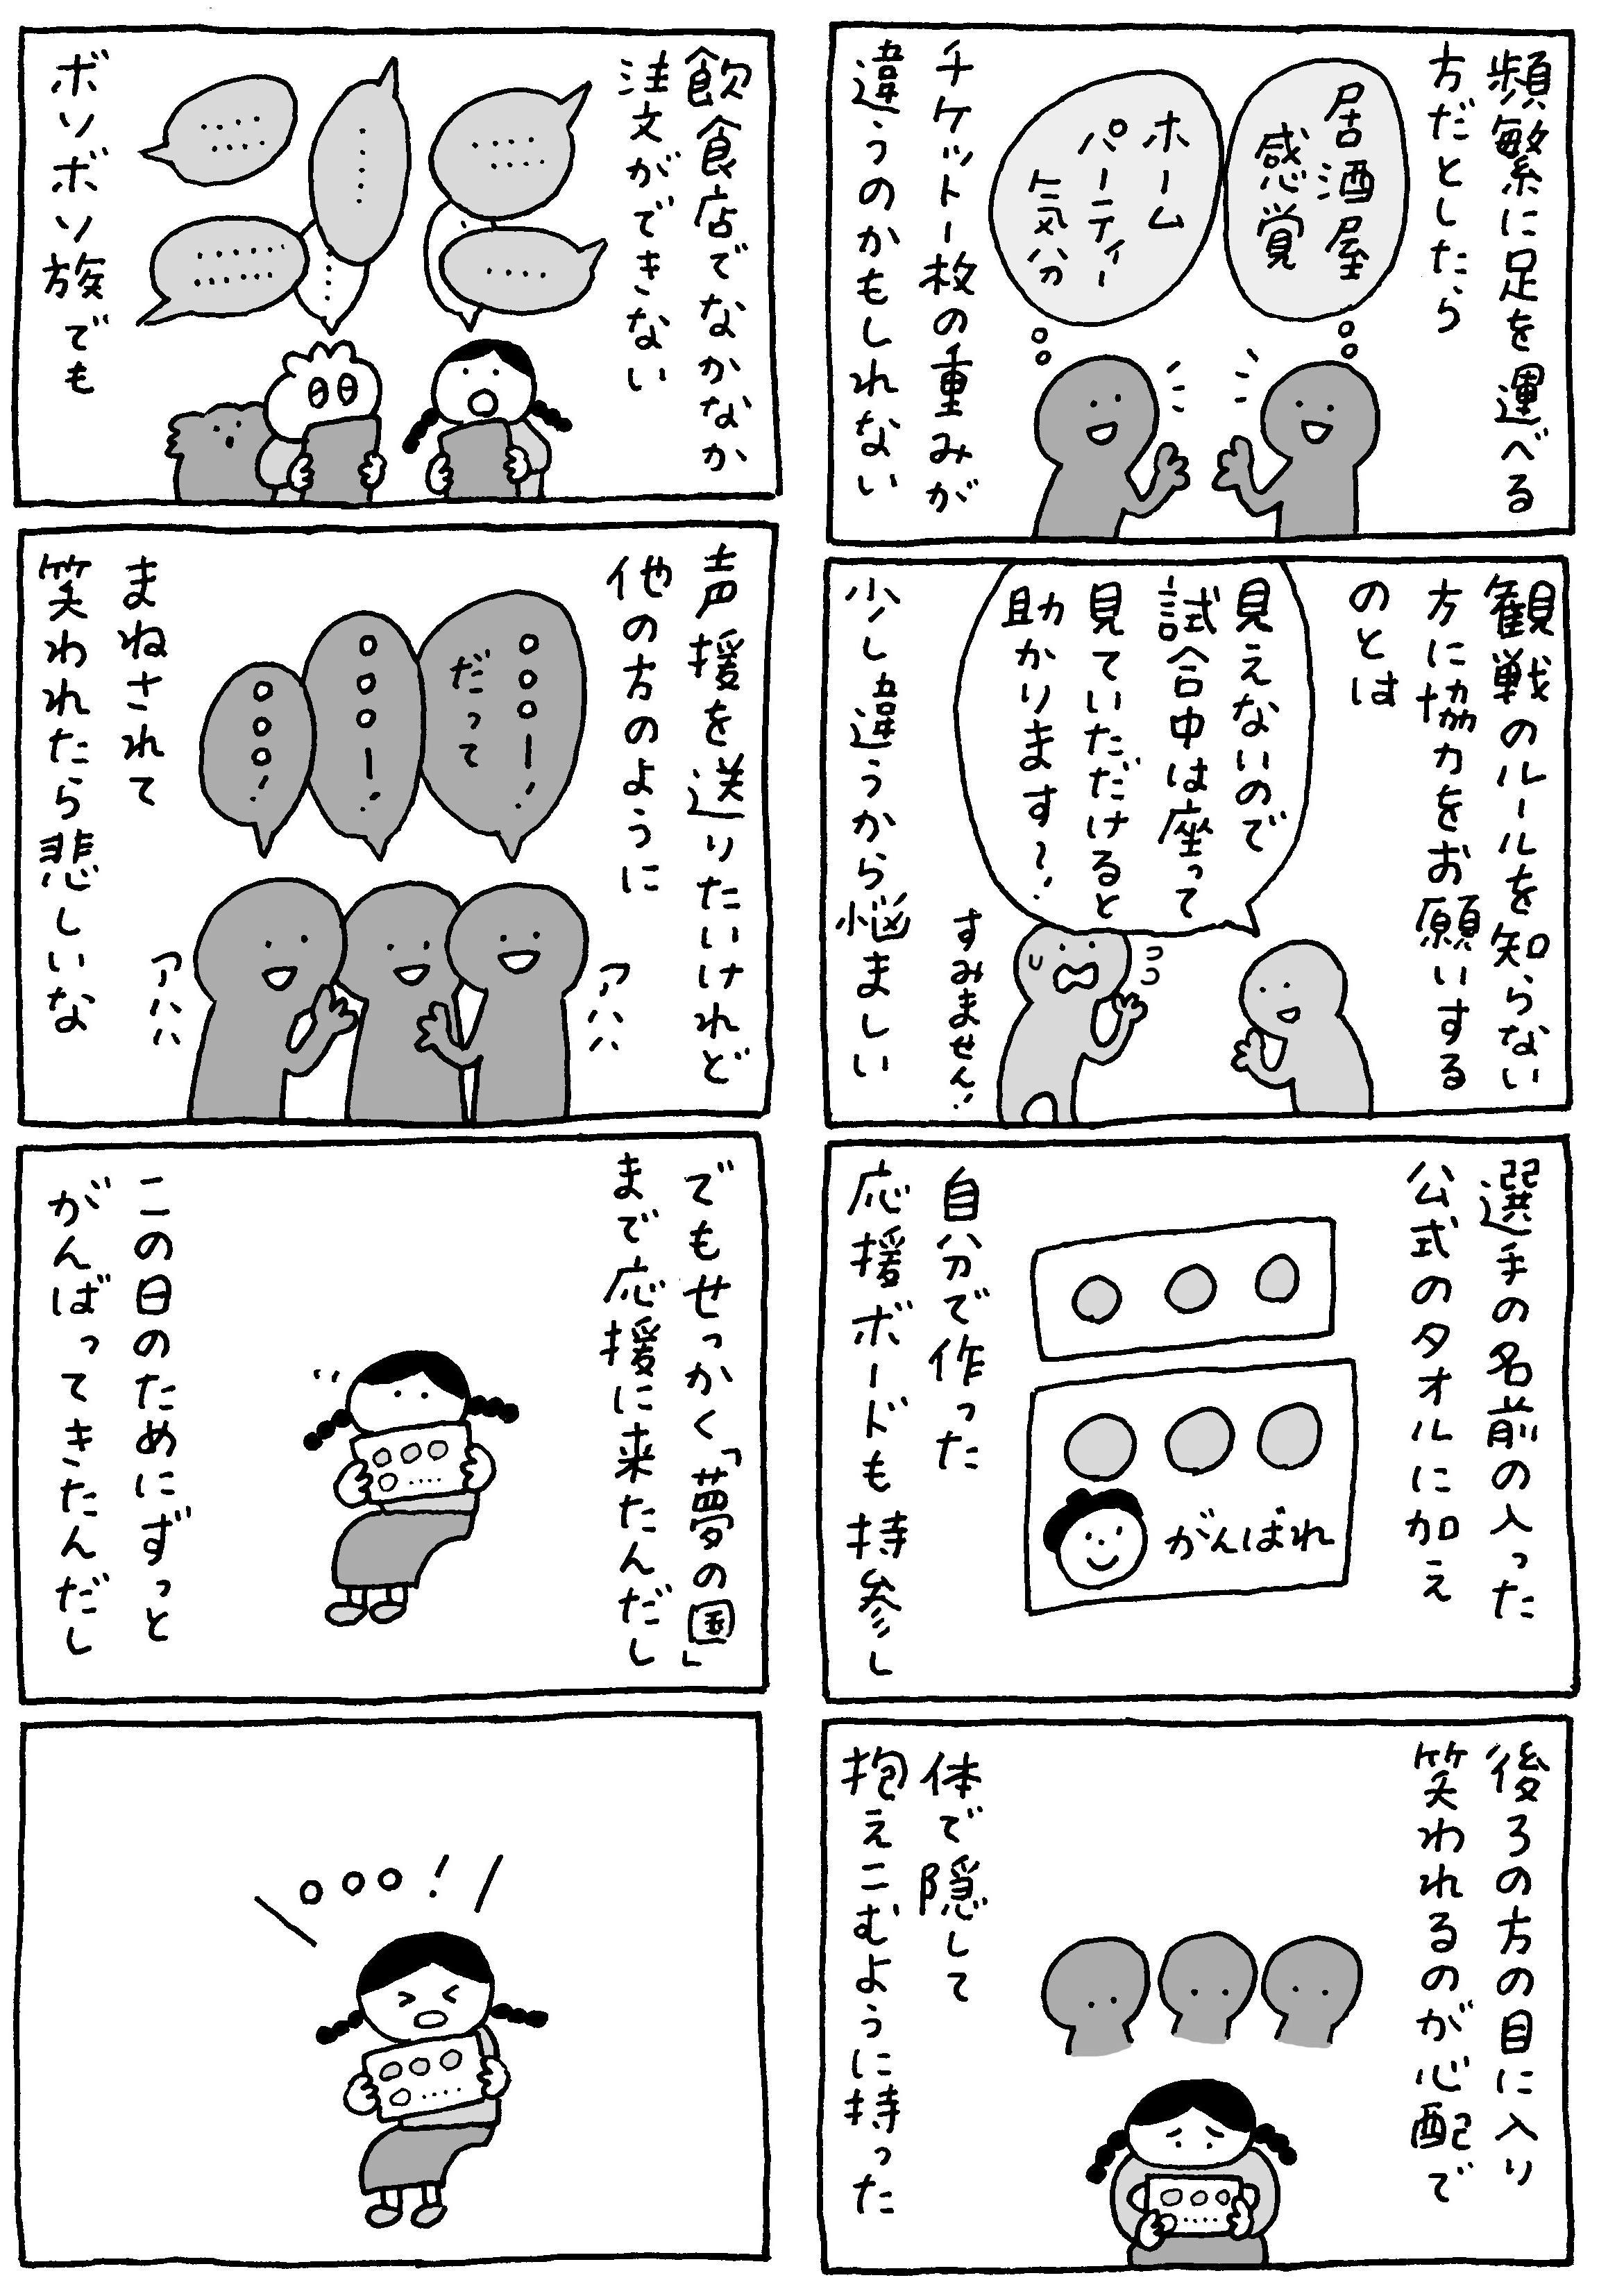 頻繁に足を運べる
方だとしたら
居酒屋
感覚
ホーム
パーティー
気分
チケット一枚の重みが
違うのかもしれない
観戦のルールを知らない
方に協力をお願いする
のとは
見えないので
試合中は座って
見ていただけると
助かります〜!
すみません!
少し違うから悩ましい
選手の名前の入った
公式のタオルに加え
がんばれ
自分で作った
応援ボードも持参し
後ろの方の目に入り
笑われるのが心配で
体で隠して
抱えこむように持った
飲食店でなかなか
注文ができない
‥‥
‥‥
ボソボソ族でも
声援を送りたいけれど
他の方のように
○○○ー!
だって
○○○ー!
○○○!
アハハ
アハハ
まねされて
笑われたら悲しいな
でもせっかく「夢の国」
まで応援に来たんだし
この日のためにずっと
がんばってきたんだし
○○○!